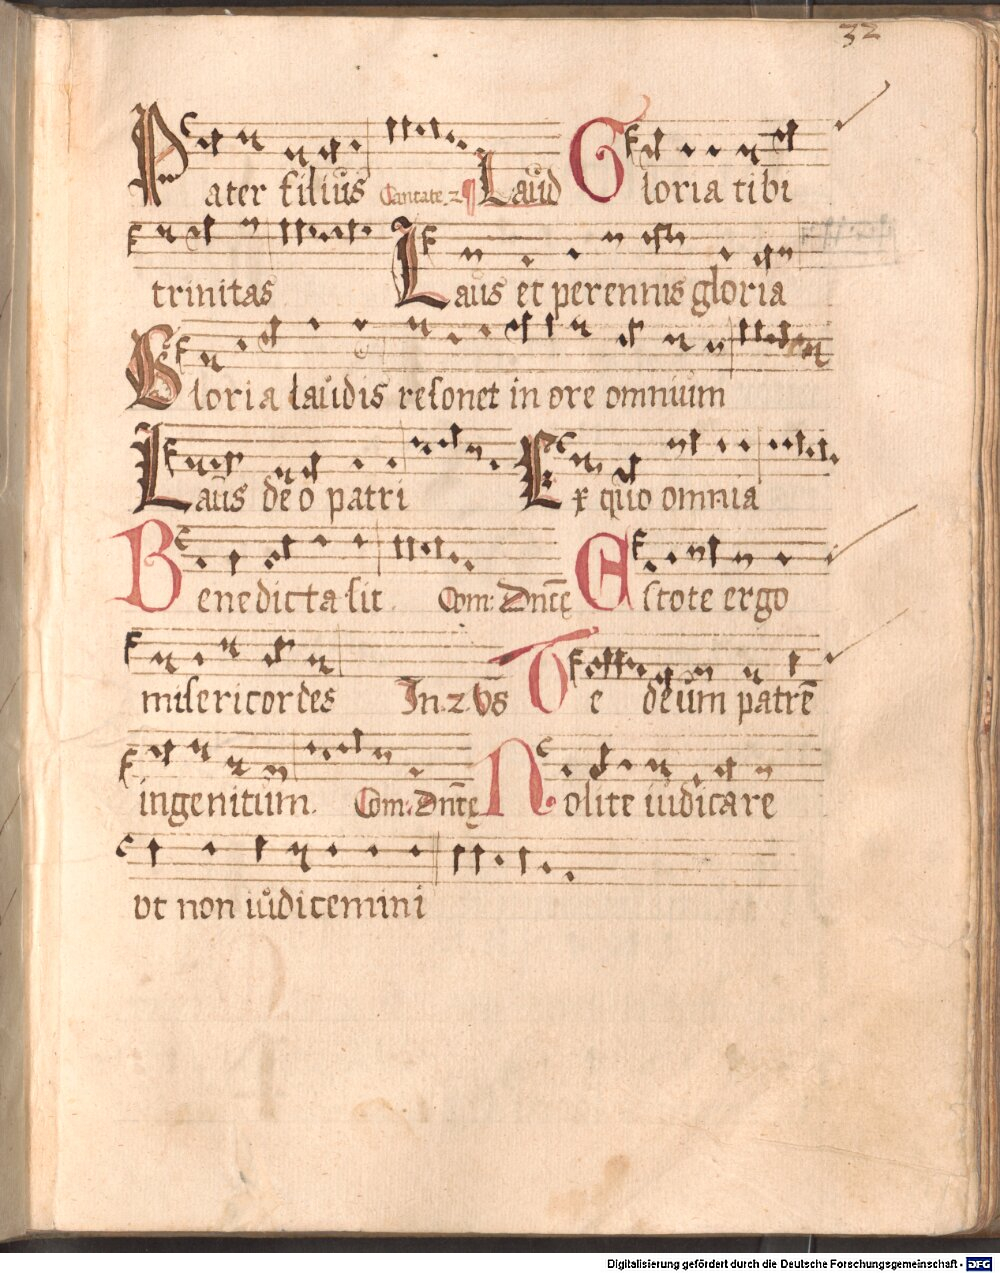 32
Pater filius Cantate. 2 ¶ Laud Gloria tibi
trinitas Laus et perennis gloria
Gloria laudis resonet in ore omnium
Laus deo patri Ex quo omnia
Benedicta sit. Com: Dnicę Estote ergo
misericordes In. 2. vs̄ Te deum patrē
ingenitum. Com: Dnicę Nolite iudicare
vt non iudicemini
Digitalisierung gefördert durch die Deutsche Forschungsgemeinschaft - DFG